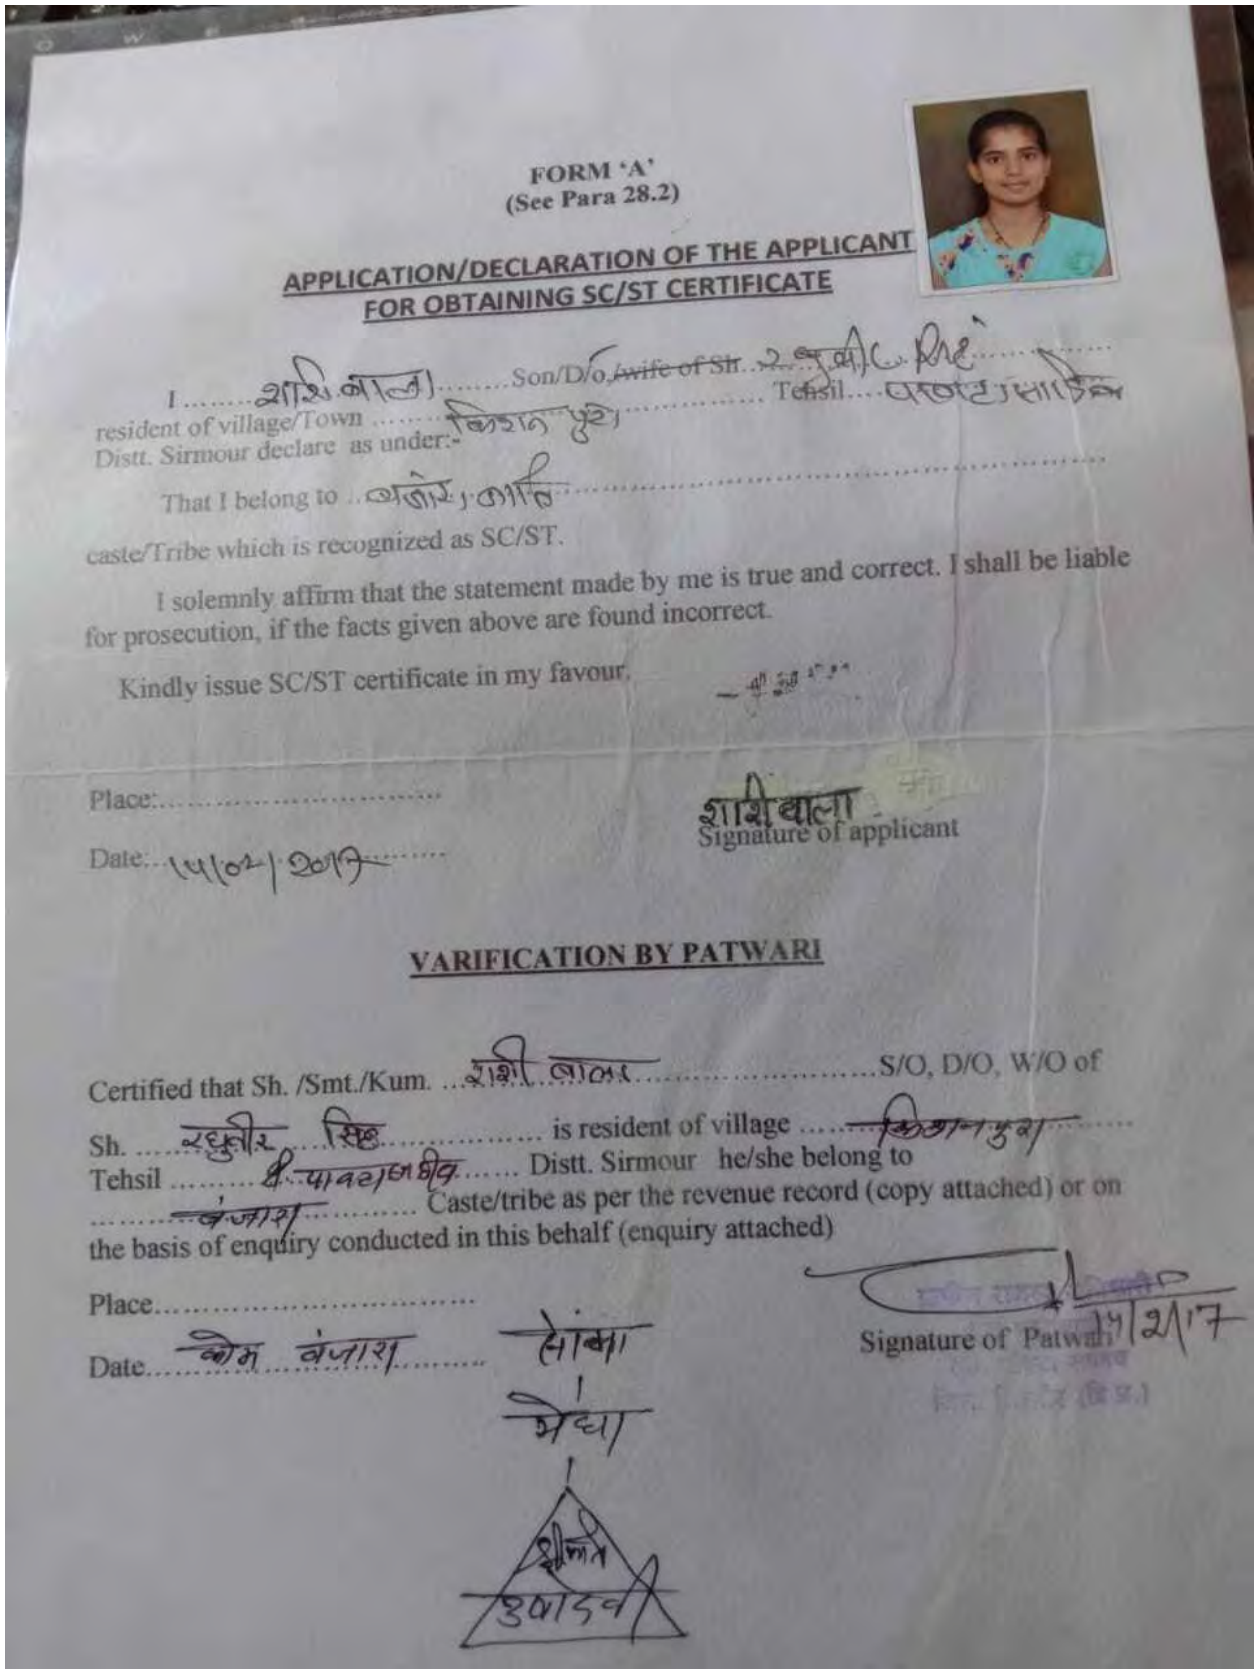 FORM ‘A’
(See Para 28.2)
APPLICATION/DECLARATION OF THE APPLICANT
FOR OBTAINING SC/ST CERTIFICATE
I ........शशि बाला........Son/D/o,/wife of Sh...
resident of village/Town ........किशन पुरा........ Tehsil....
Distt. Sirmour declare as under:-
That I belong to ...
caste/Tribe which is recognized as SC/ST.
I solemnly affirm that the statement made by me is true and correct. I shall be liable
for prosecution, if the facts given above are found incorrect.
Kindly issue SC/ST certificate in my favour.
Place:................................
शशि बाला
Signature of applicant
Date:...14/02/2017........
VARIFICATION BY PATWARI
Certified that Sh. /Smt./Kum. ...शशी बाला..............................S/O, D/O, W/O of
Sh. ......रघुवीर सिंह.................. is resident of village .....किशनपुरा........
Tehsil .................. Distt. Sirmour he/she belong to
...........बंजारा............... Caste/tribe as per the revenue record (copy attached) or on
the basis of enquiry conducted in this behalf (enquiry attached)
Place....................................
Signature of Patwari 14/2/17
Date...कोम बंजारा............
मेघा
श्रीमति
उषा देवी